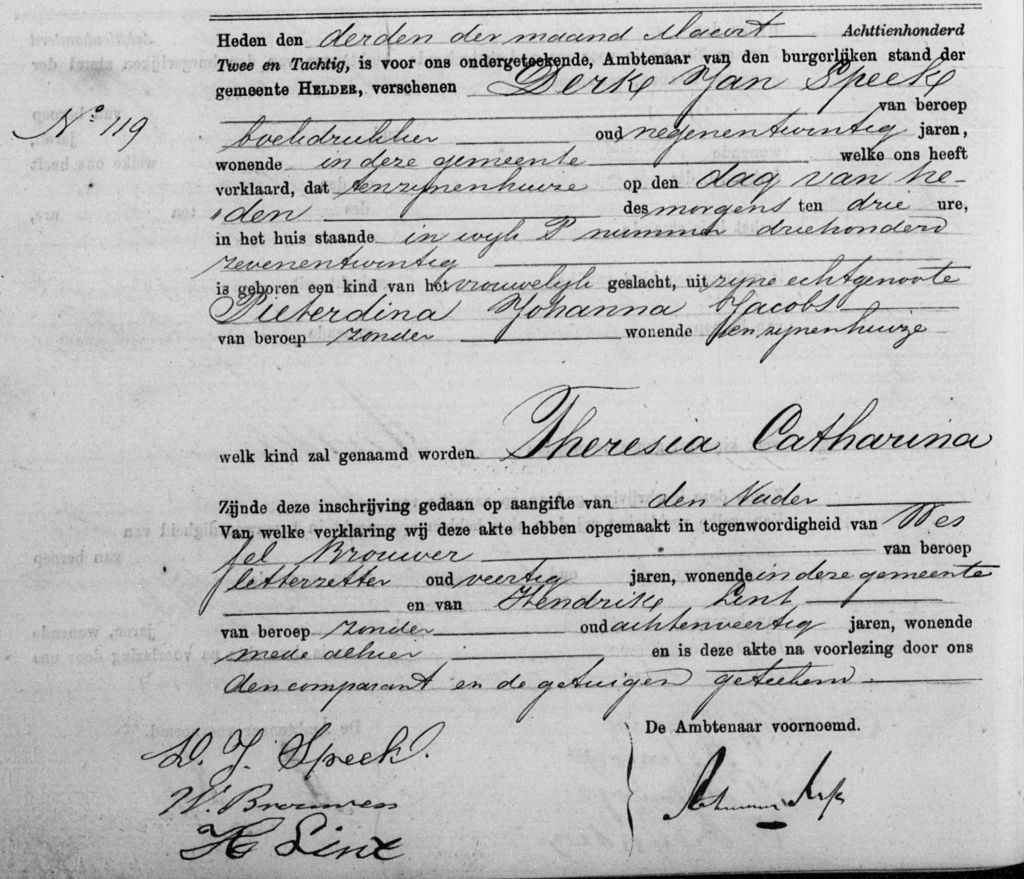 Heden den derden der maand Maart Achttienhonderd
Twee en Tachtig, is voor ons ondergeteekende, Ambtenaar van den burgerlijken stand der
gemeente HELDER, verschenen Derk Jan Speek
van beroep
No 119
boekdrukker oud negenentwintig jaren,
wonende in deze gemeente welke ons heeft
verklaard, dat tenzynenhuize op den dag van he-
"den des morgens ten drie ure,
in het huis staande in wyk P nummer driehonderd
zevenentwintig
is geboren een kind van het vrouwelyk geslacht, uit zyne echtgenoote
Pieterdina Johanna Jacobs
van beroep zonder wonende tenzynenhuize
welk kind zal genaamd worden Theresia Catharina
Zijnde deze inschrijving gedaan op aangifte van den Vader
Van welke verklaring wij deze akte hebben opgemaakt in tegenwoordigheid van Wes
sel Brouwer van beroep
letterzetter oud veertig jaren, wonende in deze gemeente
en van Hendrik Lint
van beroep zonder oud achtenveertig jaren, wonende
mede alhier en is deze akte na voorlezing door ons
den comparant en de getuigen geteekend
De Ambtenaar voornoemd.
D. J. Speek.
W. Brouwer
H Lint